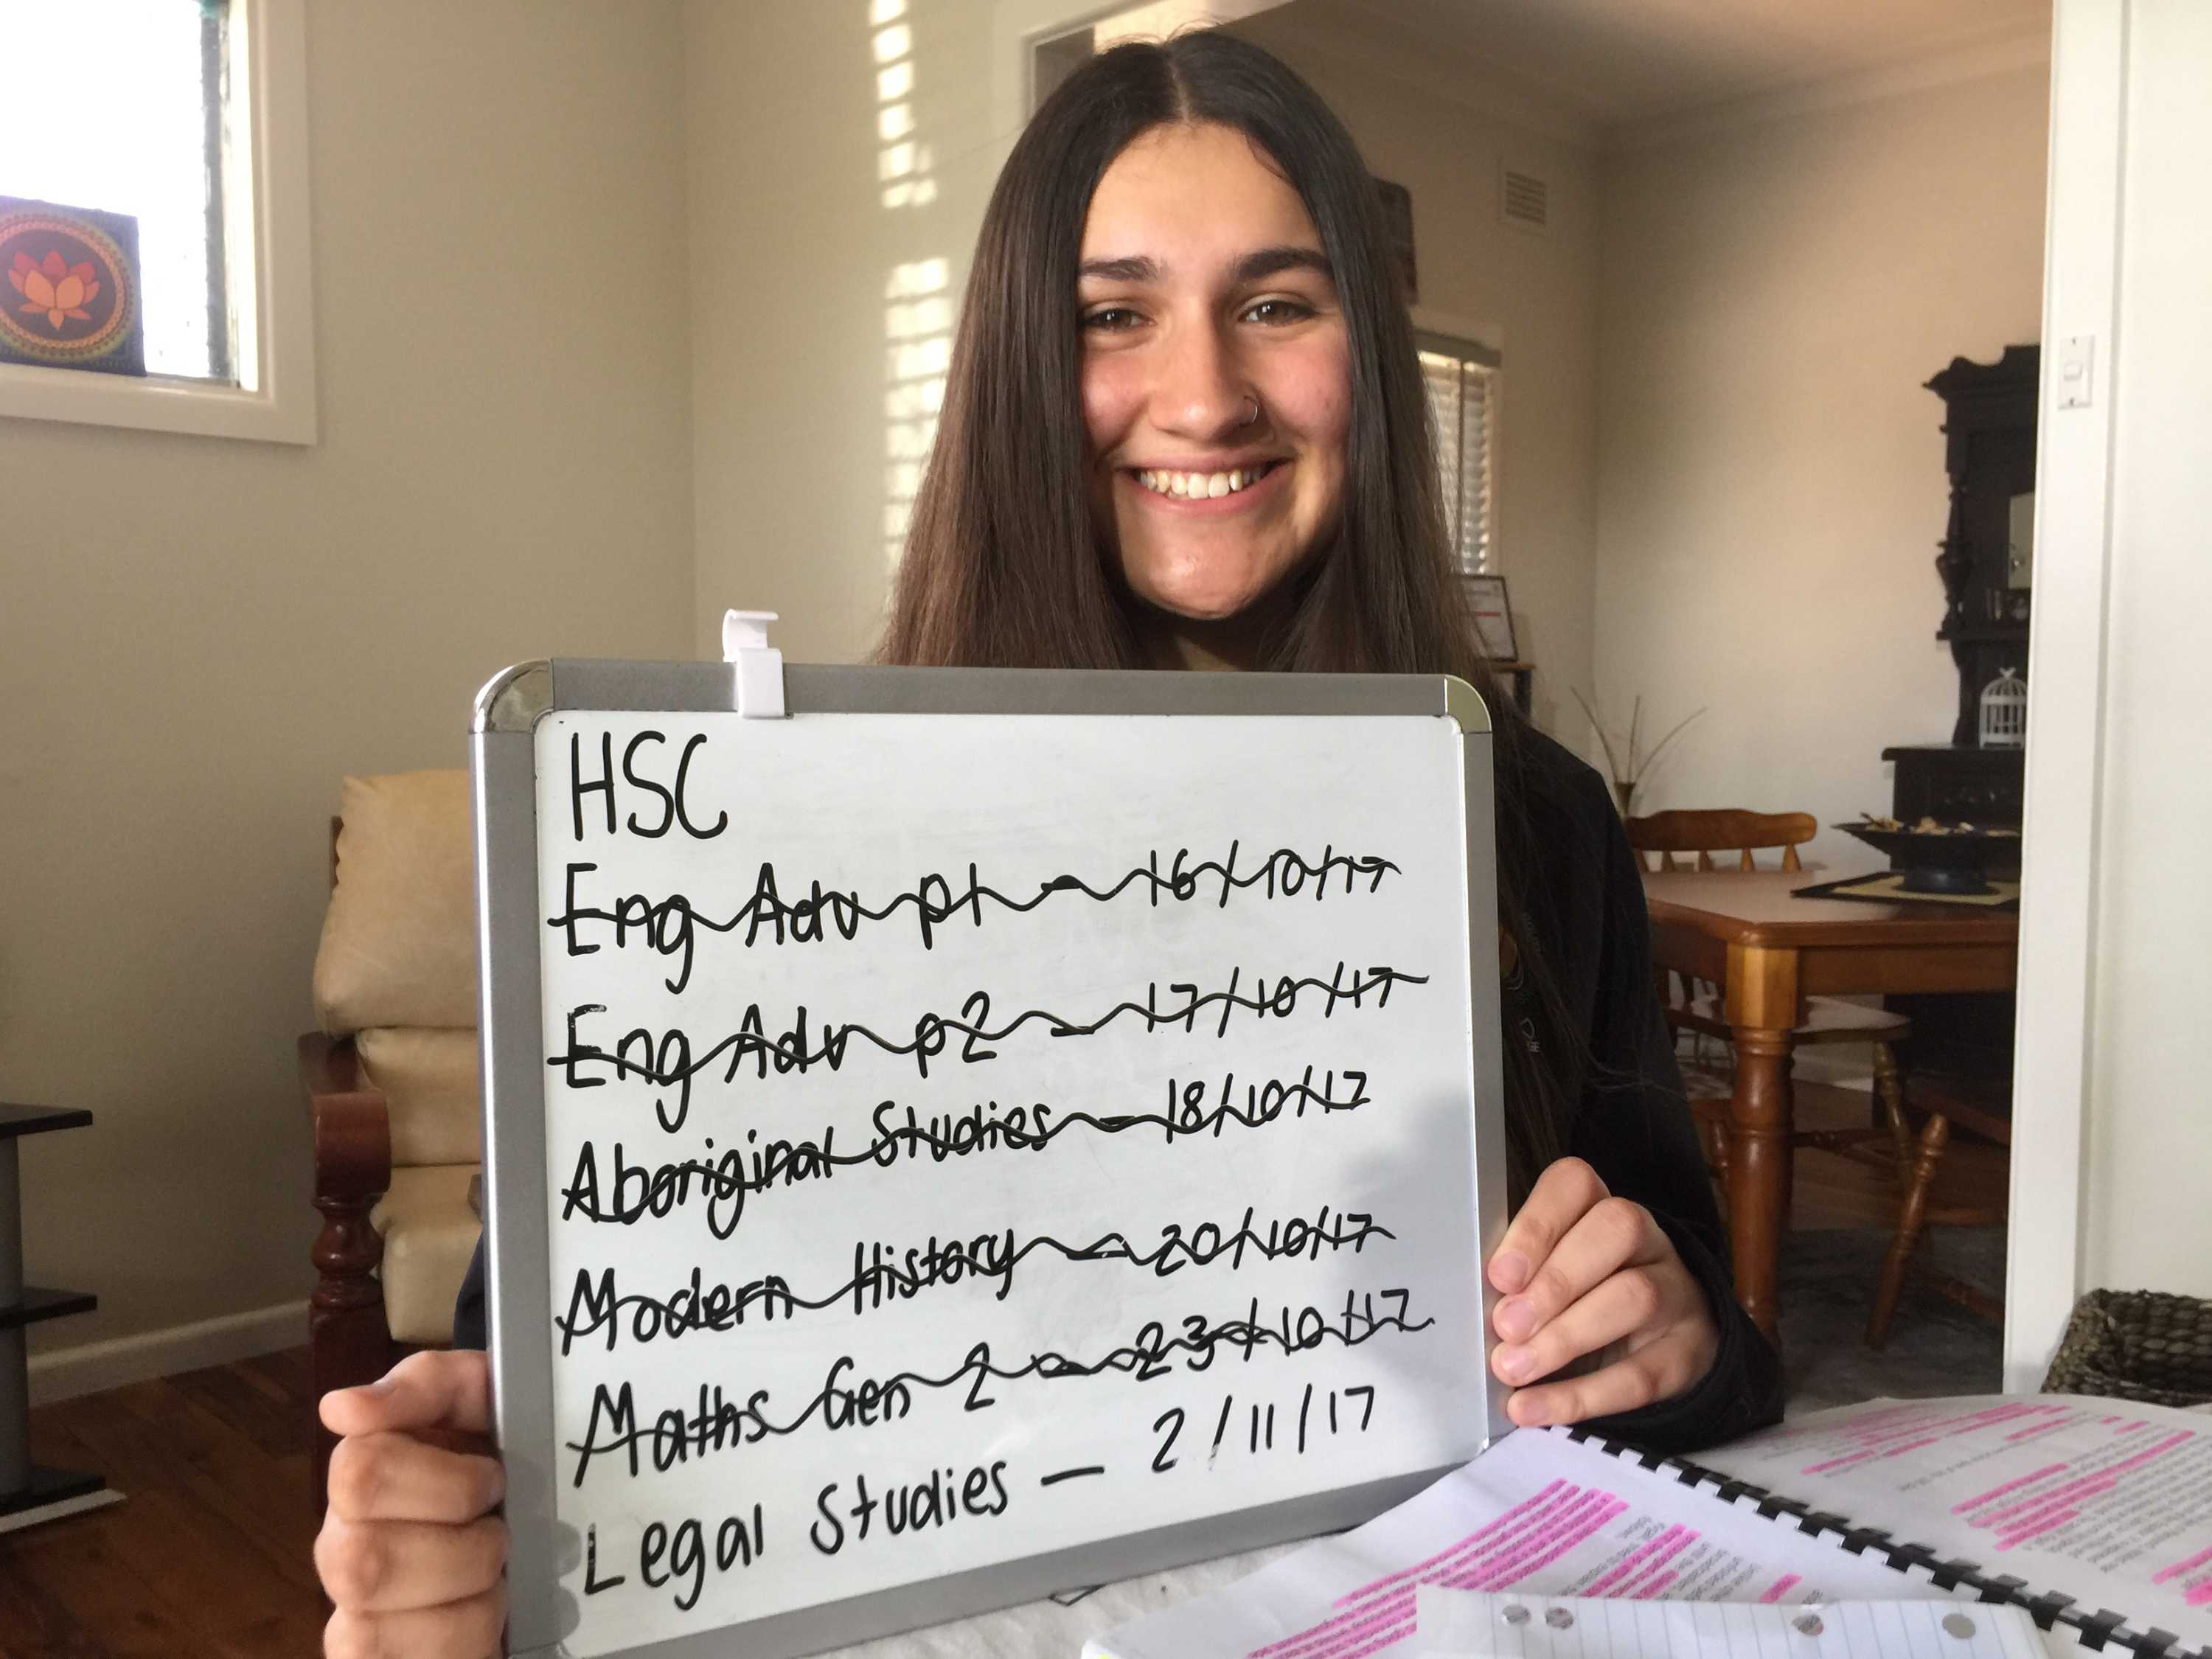 HSC
Eng Adv p1 - 16/10/17
Eng Adv p2 - 17/10/17
Aboriginal Studies - 18/10/17
Modern History - 20/10/17
Maths Gen 2 - 23/10/17
Legal Studies - 2/11/17